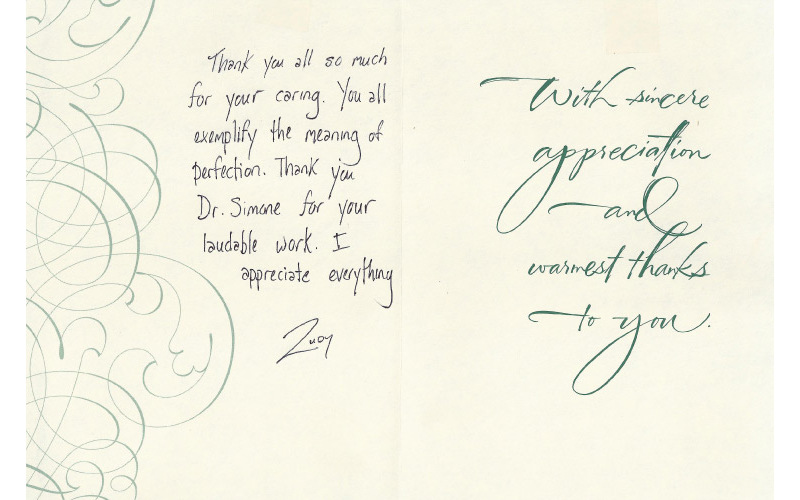 Thank you all so much
for your caring. You all
exemplify the meaning of
perfection. Thank you
Dr. Simone for your
laudable work. I
appreciate everything
With sincere
appreciation
and
warmest thanks
to you.